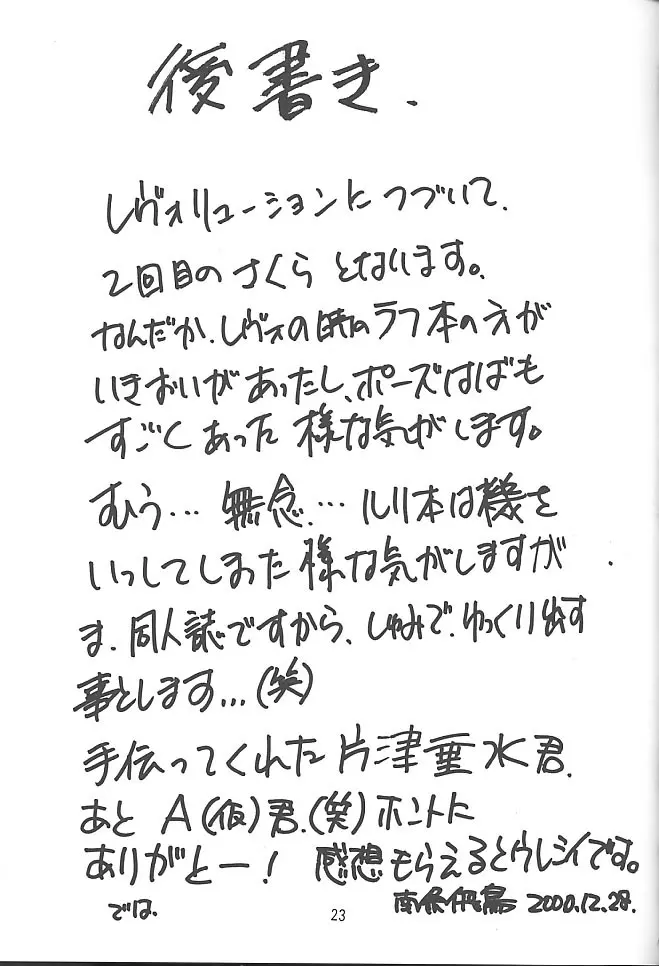 後書き.
レヴォリューションにつづいて.
2回目のさくらとなります。
なんだか、レヴォの時のラフ本の方が
いきおいがあったし、ポーズはばも
すごくあった様な気がします。
むう… 無念.… ルリ本は機を
いっしてしまった様な気がしますが
ま、同人誌ですから、しゅみで、ゆっくり出す
事とします…(笑)
手伝ってくれた片津垂水君.
あと A(仮)君.(笑)ホントに
ありがとー! 感想もらえるとウレシイです。
では.
2000.12.28.
23